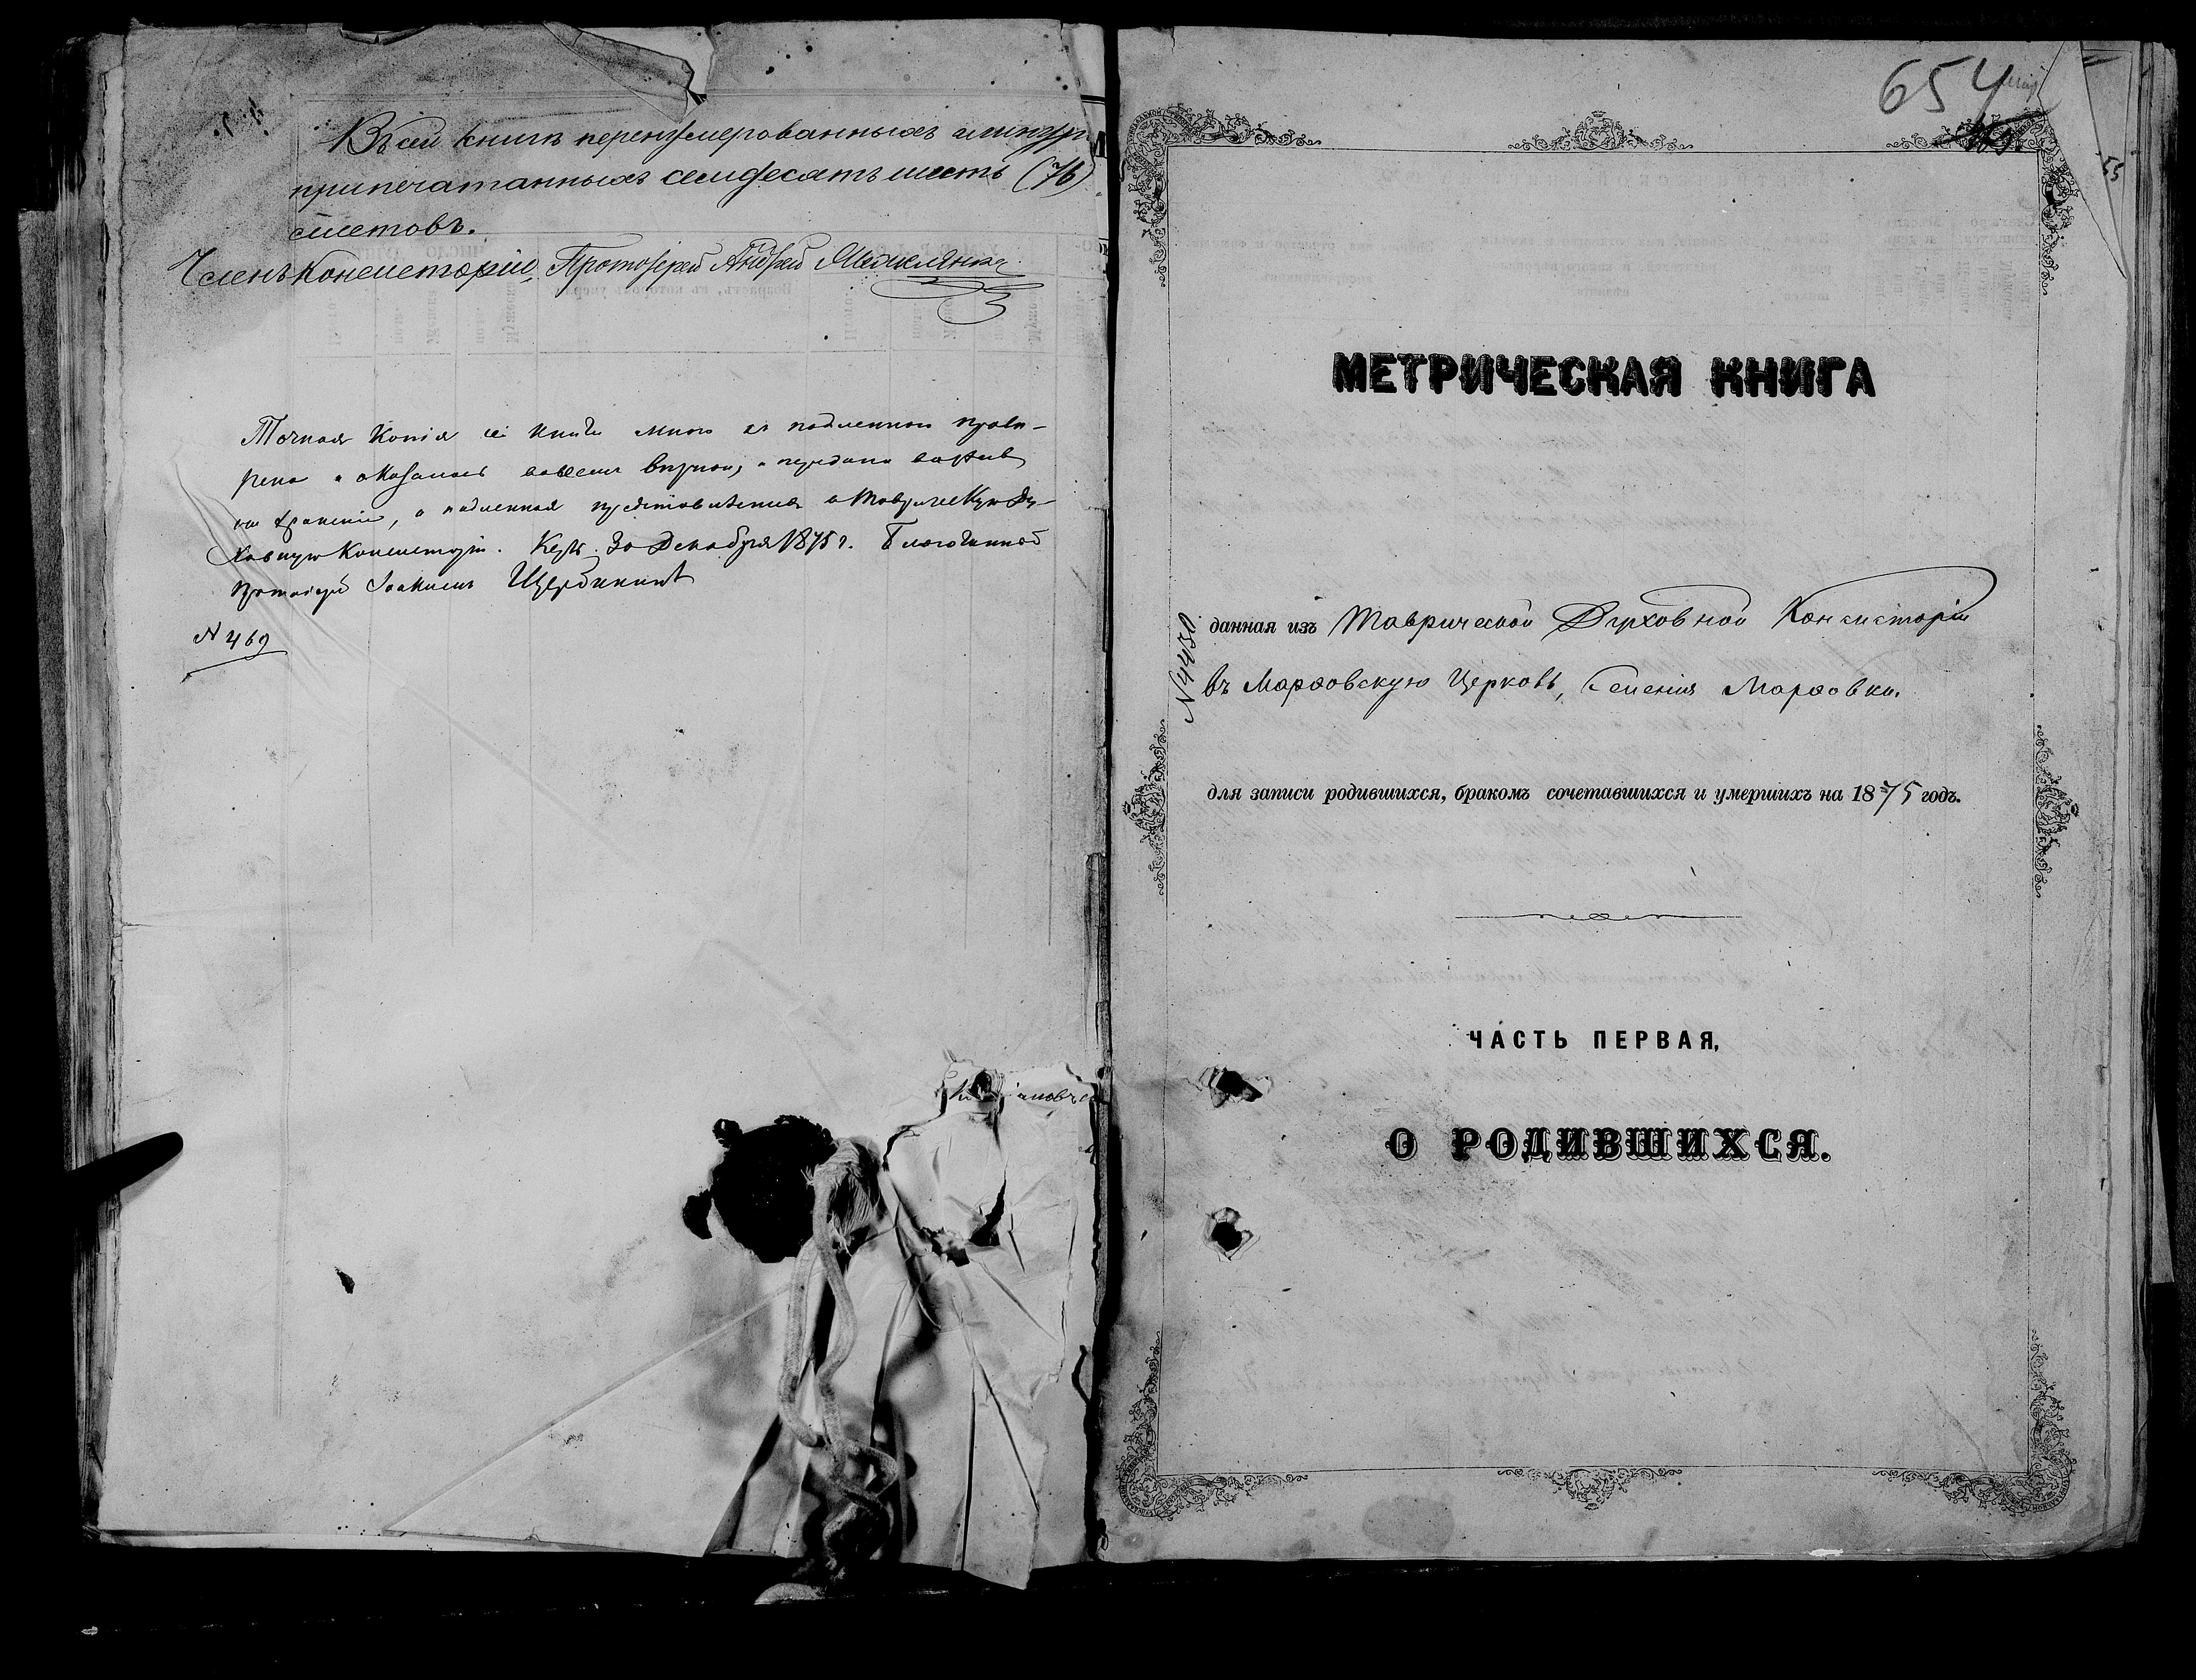 Въ сей книгѣ перенумерованныхъ и шнуро
припечатанныхъ семьдесятъ шесть (76)
листовъ.
Членъ Консисторіи, Протоіерей Андрей
Точная Копія сей книги мною съ подленною пров-
рена и оказалась вовсемъ вѣрною, и передана
на храненіе, а подленная представлена въ Таврическую Ду-
ховную Консисторію. Керчь. 30 Декабря 1875 г. Благочинной
Протоіерей Іоакимъ Щербинин
N 469
654
55
МЕТРИЧЕСКАЯ КНИГА
N 4430
данная изъ Таврической Духовной Консисторіи
въ Марфовскую Церковь, Селенія Марфовки.
для записи родившихся, бракомъ сочетавшихся и умершихъ на 1875 годъ.
ЧАСТЬ ПЕРВАЯ,
О РОДИВШИХСЯ.